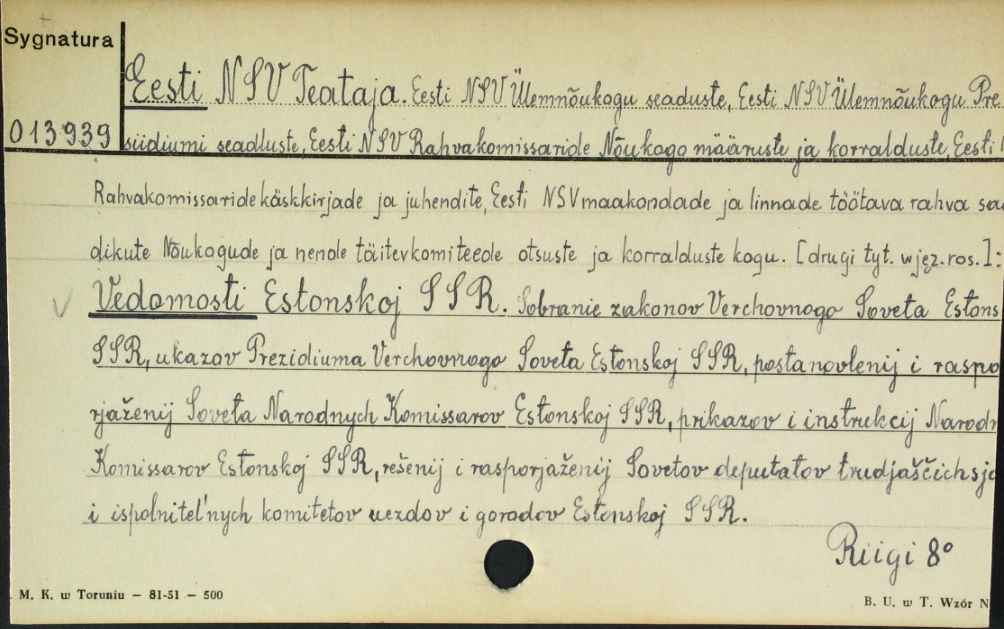 Sygnatura
Eesti NSV Teataja. Eesti NSV Ülemnõukogu seaduste, Eesti NSV Ülemnõukogu Pre
013939
siidiumi seadluste, Eesti NSV Rahvakomissaride Nõukogo määruste ja korralduste, Eesti
Rahvakomissaride käskkirjade ja juhendite, Eesti NSV maakondade ja linnade töötava rahva saa
dikute Nõukogude ja nende täitevkomiteede otsuste ja korralduste kogu. [drugi tyt. w jęz. ros.]:
Vedomosti Estonskoj SSR. Sobranie zakonov Verchovnogo Soveta Estons
SSR, ukazov Prezidiuma Verchovnogo Soveta Estonskoj SSR, postanovlenij i raspo
rjaženij Soveta Narodnych Komissarov Estonskoj SSR, prikazov i instrukcij Narodn
Komissarov Estonskoj SSR, rešenij i rasporjaženij Sovetov deputatov trudjaščichsja
i ispolnitel'nych komitetov uezdov i gorodov Estonskoj SSR.
Riigi 8°
M. K. w Toruniu — 81-51 — 500
B. U. w T. Wzór N